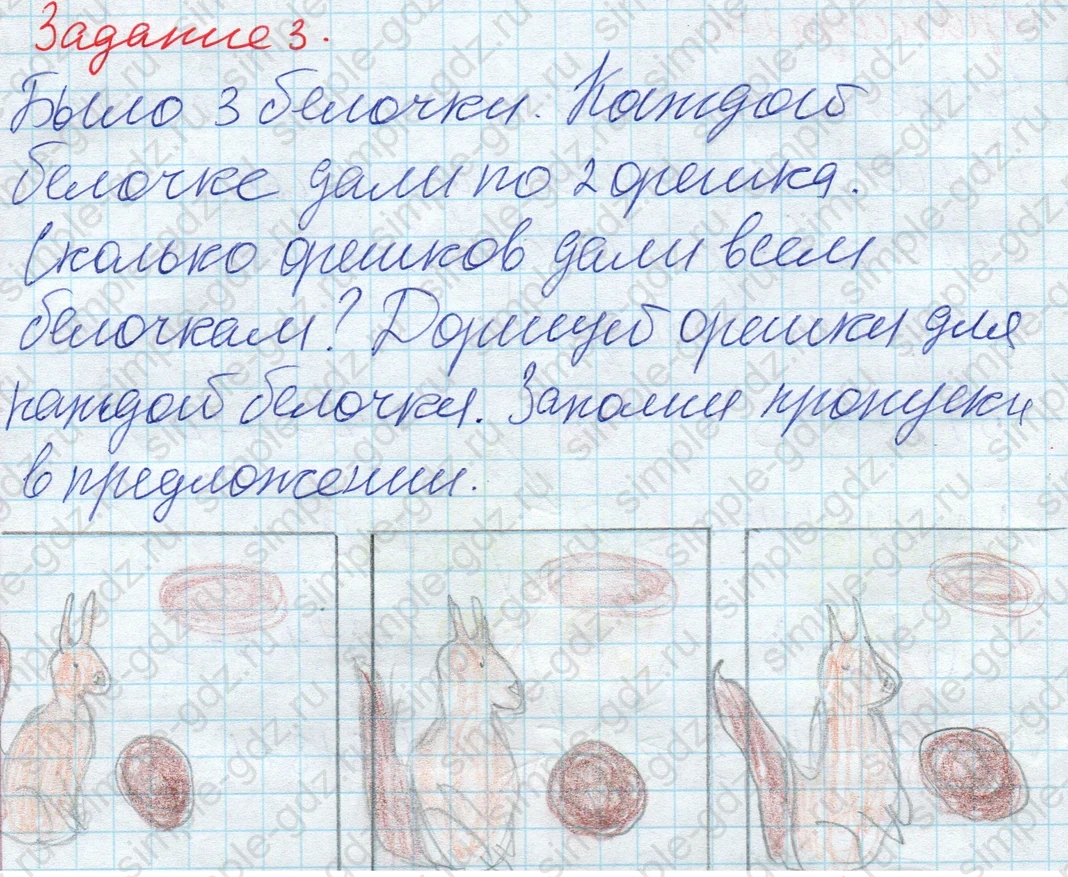 Задание 3.
Было 3 белочки. Каждой
белочке дали по 2 орешка.
Сколько орешков дали всем
белочкам? Дорисуй орешки для
каждой белочки. Заполни пропуски
в предложении.
simple-gdz.ru